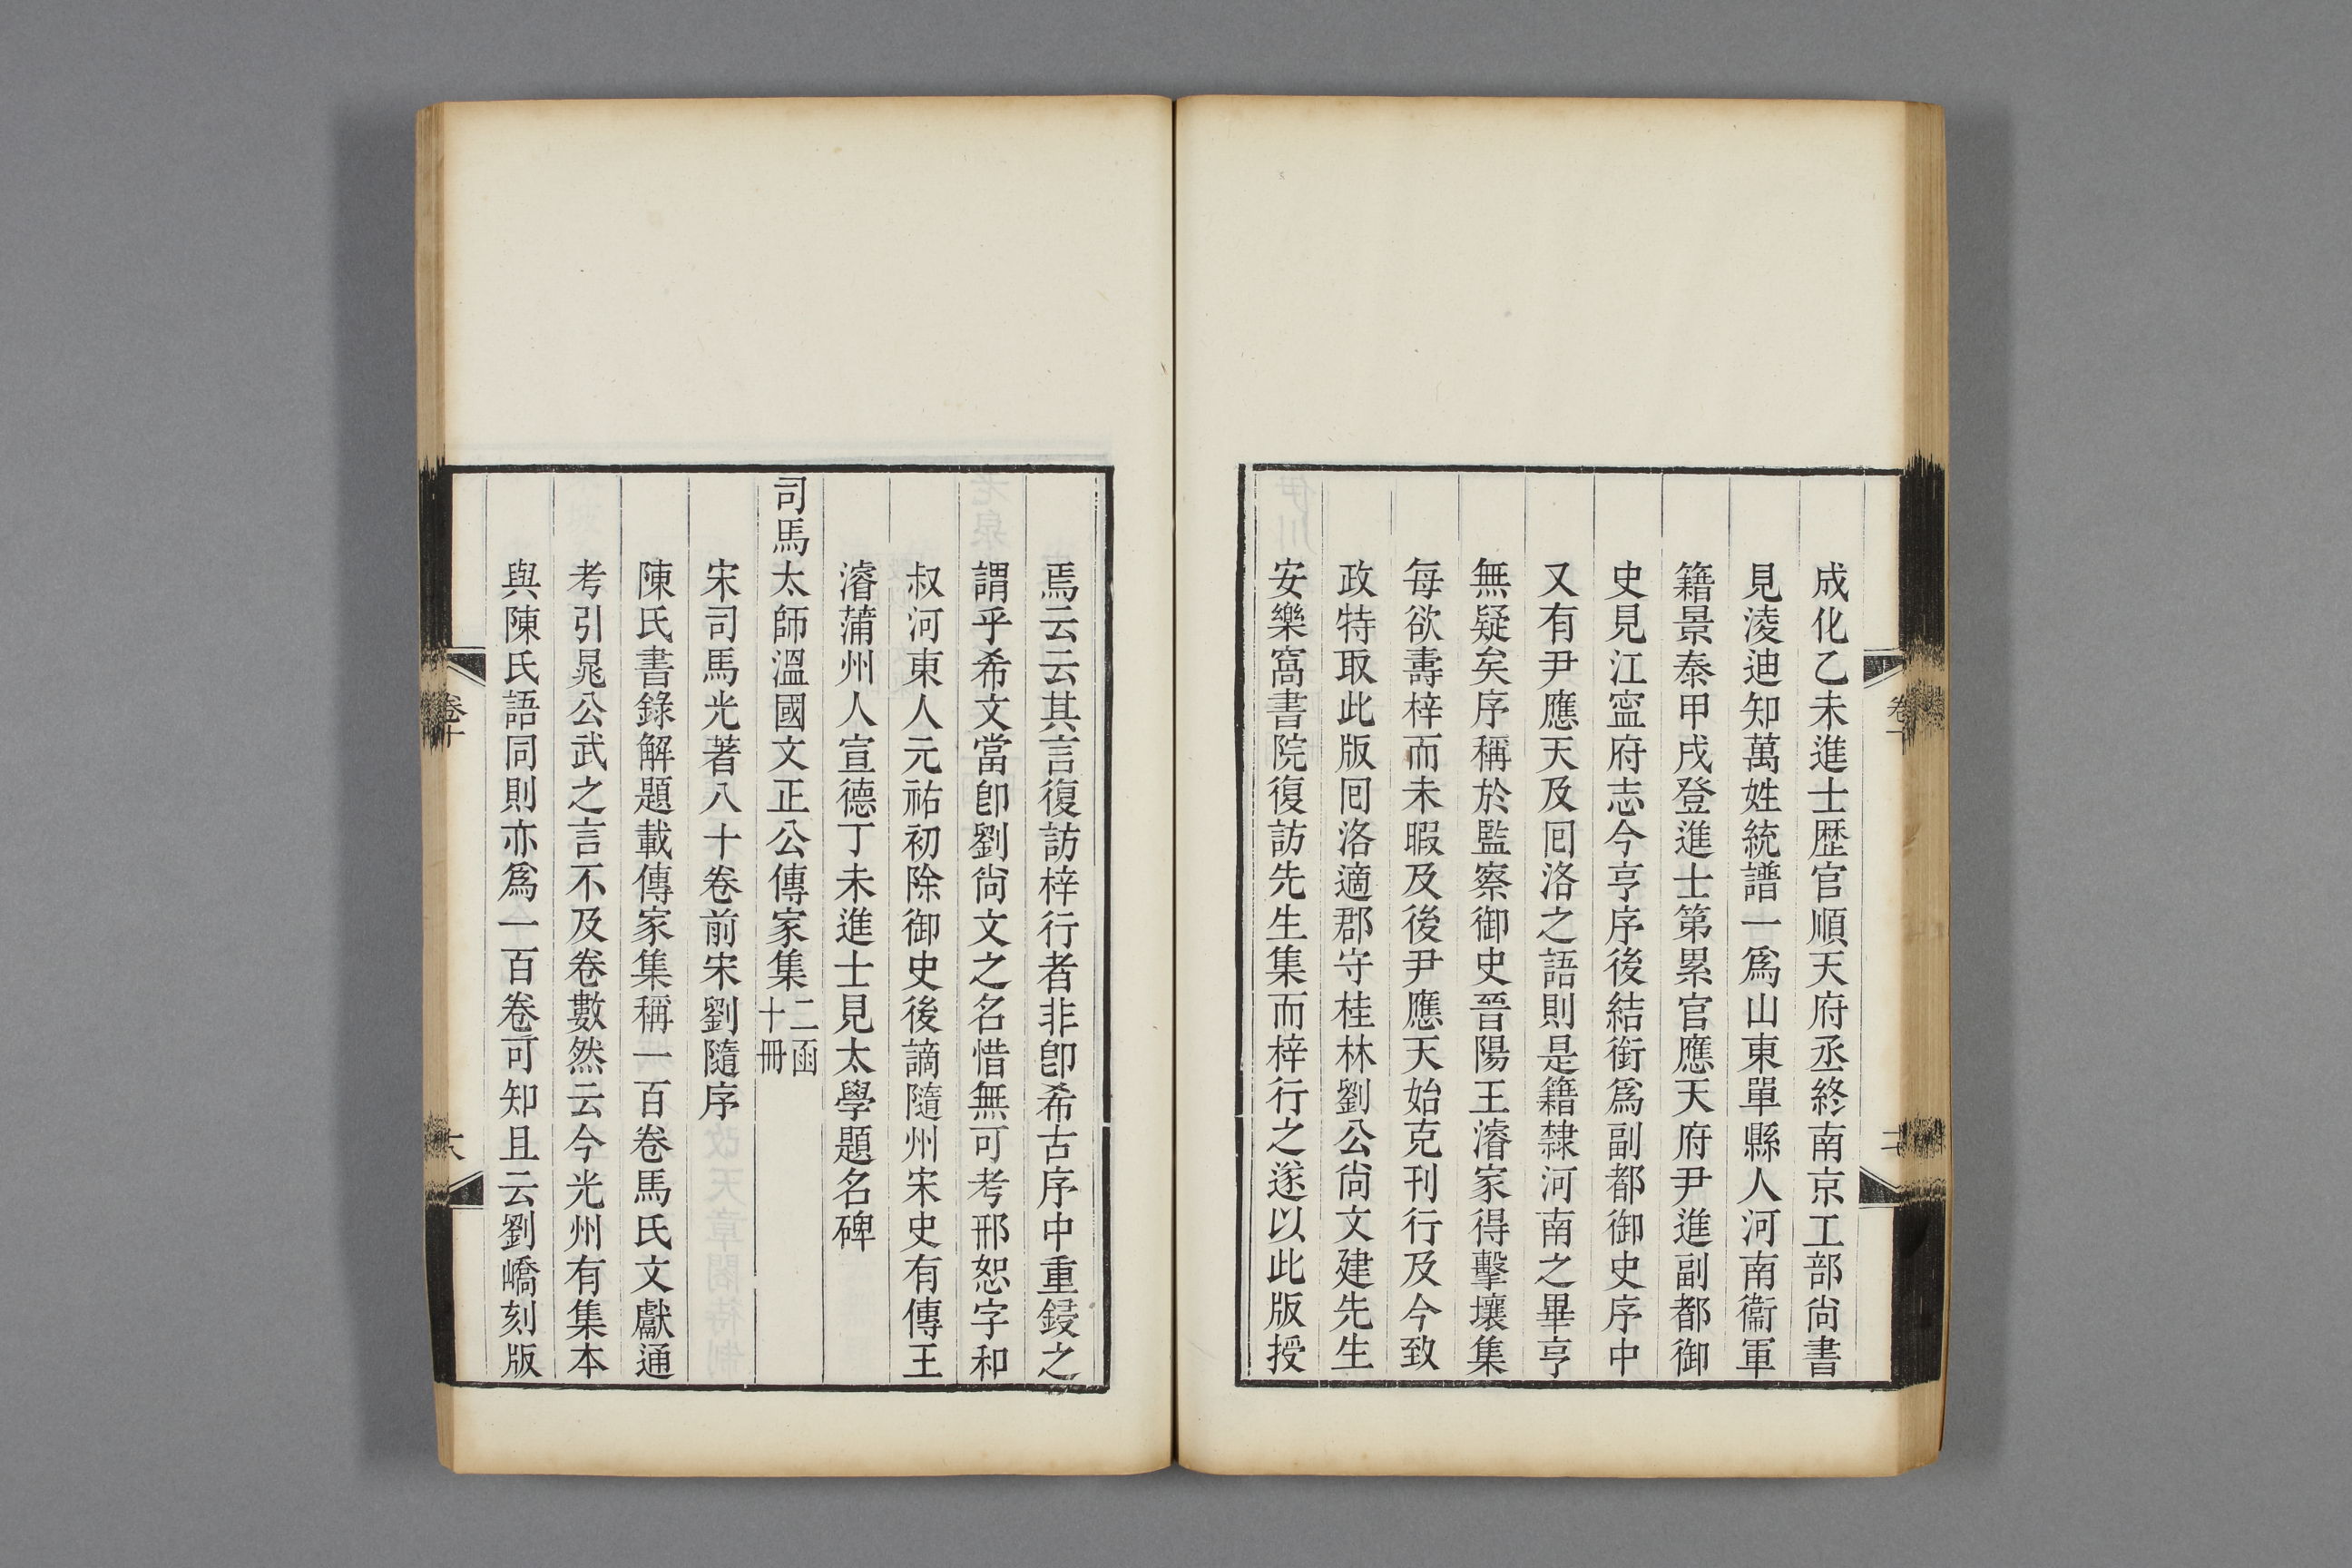 成化乙未進士歷官順天府丞終南京工部尙書
見淩迪知萬姓統譜一爲山東單縣人河南衞軍
籍景泰甲戌登進士第累官應天府尹進副都御
史見江寍府志今亨序後結銜爲副都御史序中
又有尹應天及囘洛之語則是籍隸河南之畢亨
無疑矣序稱於監察御史晉陽王濬家得擊壤集
每欲壽梓而未暇及後尹應天始克刊行及今致
政特取此版囘洛適郡守桂林劉公尙文建先生
安樂窩書院復訪先生集而梓行之遂以此版授
焉云云其言復訪梓行者非卽希古序中重鋟之
謂乎希文當卽劉尙文之名惜無可考邢恕字和
叔河東人元祐初除御史後謫隨州宋史有傳王
濬蒲州人宣德丁未進士見太學題名碑
司馬太師溫國文正公傳家集二函十冊
宋司馬光著八十卷前宋劉隨序
陳氏書錄解題載傳家集稱一百卷馬氏文獻通
考引晁公武之言不及卷數然云今光州有集本
與陳氏語同則亦爲一百卷可知且云劉嶠刻版
卷十